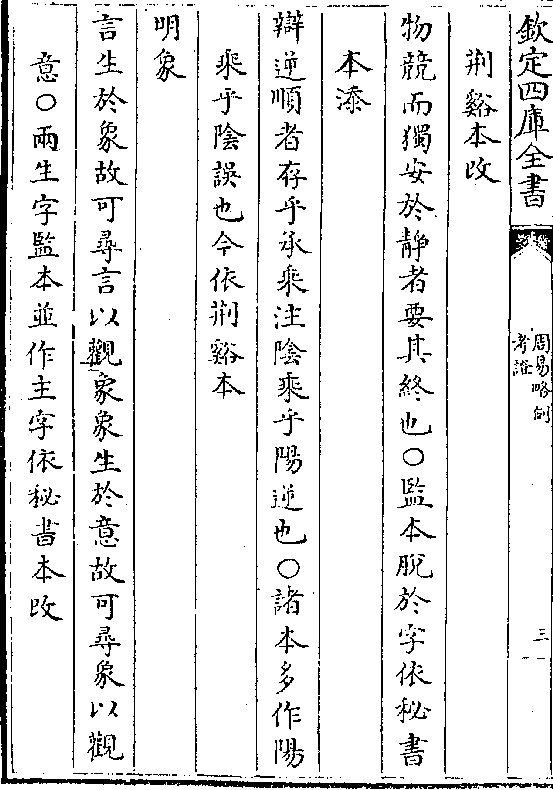 欽定四庫全書
周易略例
考證
三
荆谿本改
物競而獨安於靜者要其終也○監本脫於字依秘書
本添
辯逆順者存乎承乘注陰乘乎陽逆也○諸本多作陽
乘乎陰誤也今依荆谿本
明象
言生於象故可尋言以觀象象生於意故可尋象以觀
意○兩生字監本並作主字依秘書本改